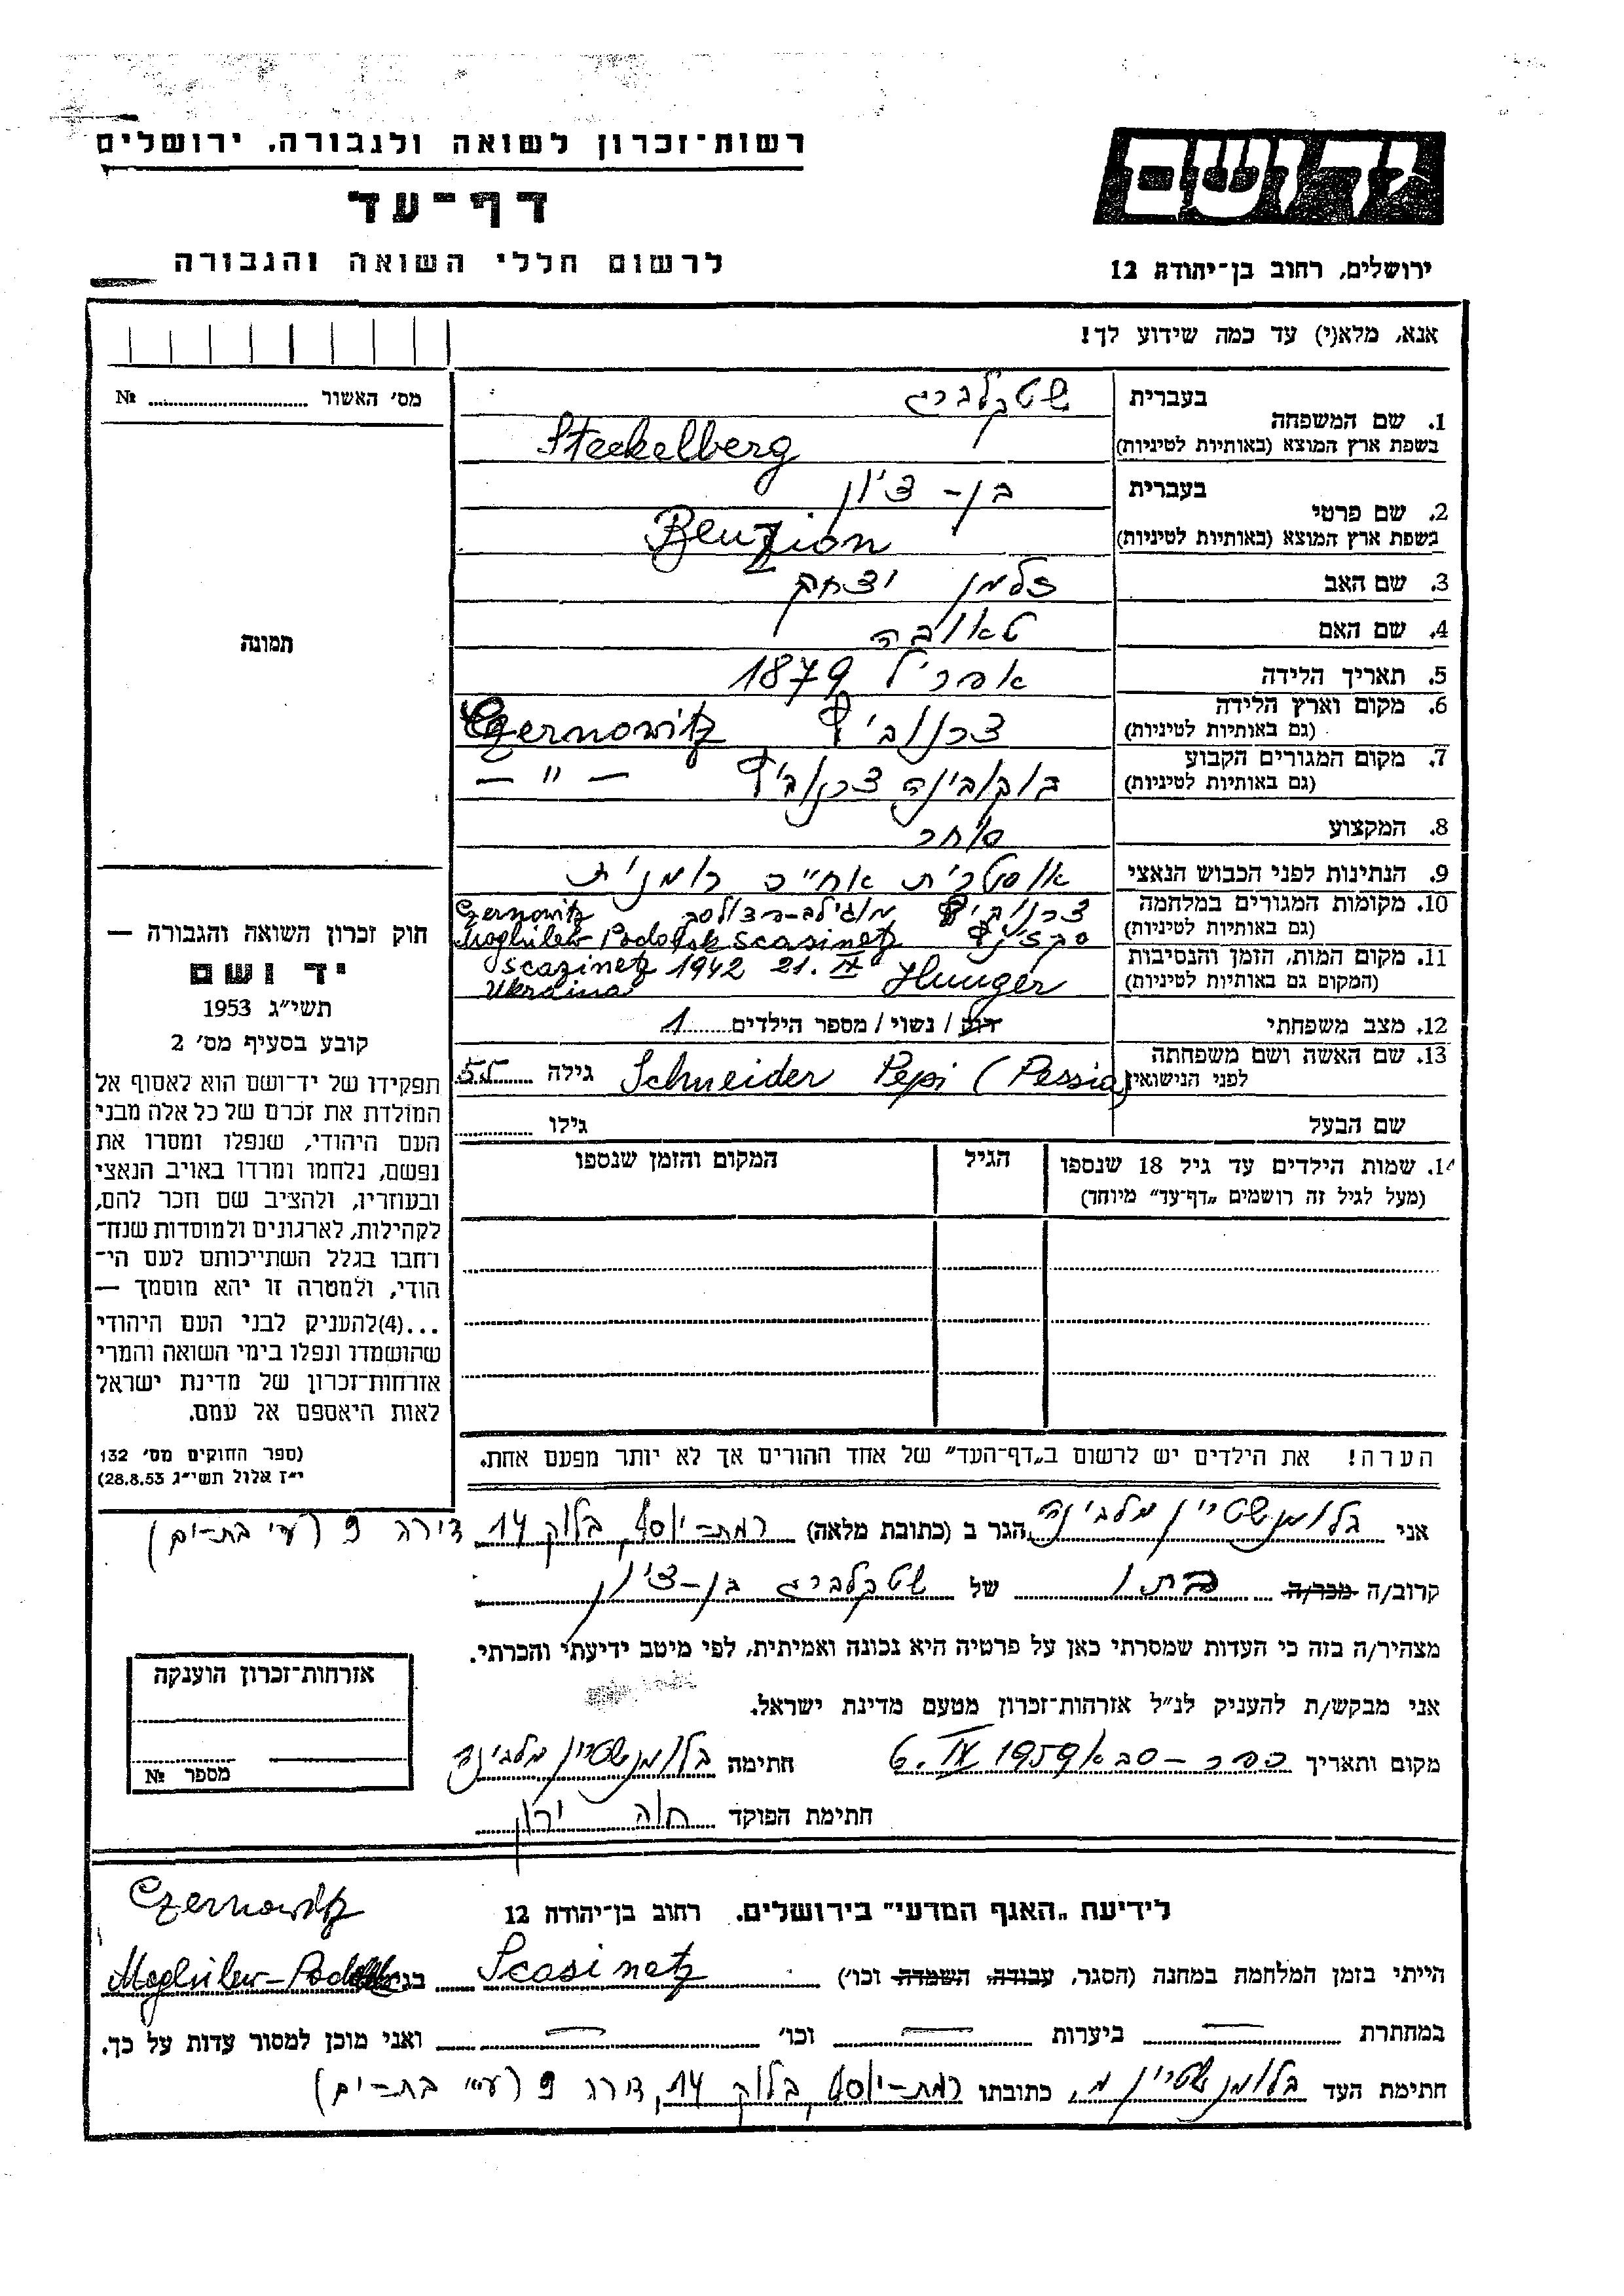 רשות־זכרון לשואה ולגבורה, ירושלים
דף־עד
לרשום חללי השואה והגבורה
יד ושם
ירושלים, רחוב בן־יהודה 12
אנא, מלא(י) עד כמה שידוע לך!
מס׳ האשור № 
תמונה
חוק זכרון השואה והגבורה —
יד ושם
תשי״ג 1953
קובע בסעיף מס׳ 2
תפקידו של יד־ושם הוא לאסוף אל
המולדת את זכרם של כל אלה מבני
העם היהודי, שנפלו ומסרו את
נפשם, נלחמו ומרדו באויב הנאצי
ובעוזריו, ולהציב שם וזכר להם,
לקהילות, לארגונים ולמוסדות שנח־
רבו בגלל השתייכותם לעם הי־
הודי, ולמטרה זו יהא מוסמך —
...(4)להעניק לבני העם היהודי
שהושמדו ונפלו בימי השואה והמרי
אזרחות־זכרון של מדינת ישראל
לאות היאספם אל עמם.
(ספר החוקים מס׳ 132
י״ז אלול תשי״ג 28.8.53)
1. שם המשפחה
בעברית שטקלברג
בשפת ארץ המוצא (באותיות לטיניות) Steckelberg
2. שם פרטי
בעברית בן-ציון
בשפת ארץ המוצא (באותיות לטיניות) Benzion
3. שם האב זלמן יצחק
4. שם האם טאובה
5. תאריך הלידה אפריל 1879
6. מקום וארץ הלידה צרנוביץ Czernowitz
(גם באותיות לטיניות)
7. מקום המגורים הקבוע בוקבינה צרנוביץ — " —
(גם באותיות לטיניות)
8. המקצוע סוחר
9. הנתינות לפני הכבוש הנאצי אוסטרית אח"כ רומנית
10. מקומות המגורים במלחמה צרנוביץ Czernowitz
(גם באותיות לטיניות) Moghilew-Podolsk Scasinetz
11. מקום המות, הזמן והנסיבות Scazinetz 1942 21. IX Hunger
(המקום גם באותיות לטיניות) Ukraina
12. מצב משפחתי רוק / נשוי / מספר הילדים 1
13. שם האשה ושם משפחתה
לפני הנישואין Schneider Pepi (Pessia) גילה 55
שם הבעל גילו
14. שמות הילדים עד גיל 18 שנספו
(מעל לגיל זה רושמים „דף־עד״ מיוחד)
הגיל
המקום והזמן שנספו
הערה! את הילדים יש לרשום ב„דף־העד״ של אחד ההורים אך לא יותר מפעם אחת.
אני בלומנשטיין מלבינה הגר ב (כתובת מלאה) רמת-יוסף, בלוק 14 דירה 9 (ע"י בת-ים)
קרוב/ה מכר/ה בתו של שטקלברג בן-ציון
מצהיר/ה בזה כי העדות שמסרתי כאן על פרטיה היא נכונה ואמיתית, לפי מיטב ידיעתי והכרתי.
אני מבקש/ת להעניק לנ״ל אזרחות־זכרון מטעם מדינת ישראל.
מקום ותאריך כפר-סבא 6. IX 1959 חתימה בלומנשטיין מלבינה
חתימת הפוקד חוה ירון
אזרחות־זכרון הוענקה
מספר №
לידיעת „האגף המדעי״ בירושלים, רחוב בן־יהודה 12
Czernowitz
הייתי בזמן המלחמה במחנה (הסגר, עבודה, השמדה וכו׳) Scasinetz בגיטו Moghilew-Podolsk
במחתרת — ביערות — וכו׳ — ואני מוכן למסור עדות על כך.
חתימת העד בלומנשטיין מ. כתובתו רמת-יוסף, בלוק 14, דירה 9 (ע"י בת-ים)